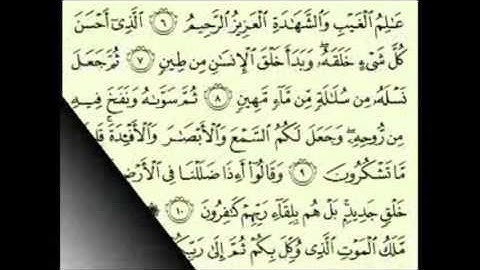 عَٰلِمُ ٱلْغَيْبِ وَٱلشَّهَٰدَةِ ٱلْعَزِيزُ ٱلرَّحِيمُ ٦ ٱلَّذِىٓ أَحْسَنَ
كُلَّ شَىْءٍ خَلَقَهُۥ ۖ وَبَدَأَ خَلْقَ ٱلْإِنسَٰنِ مِن طِينٍ ٧ ثُمَّ جَعَلَ
نَسْلَهُۥ مِن سُلَٰلَةٍ مِّن مَّآءٍ مَّهِينٍ ٨ ثُمَّ سَوَّىٰهُ وَنَفَخَ فِيهِ
مِن رُّوحِهِۦ ۖ وَجَعَلَ لَكُمُ ٱلسَّمْعَ وَٱلْأَبْصَٰرَ وَٱلْأَفْـِٔدَةَ ۚ
مَّا تَشْكُرُونَ ٩ وَقَالُوٓا۟ أَءِذَا ضَلَلْنَا فِى ٱلْأَرْضِ
خَلْقٍ جَدِيدٍۭ ۚ بَلْ هُم بِلِقَآءِ رَبِّهِمْ كَٰفِرُونَ ١٠
مَّلَكُ ٱلْمَوْتِ ٱلَّذِى وُكِّلَ بِكُمْ ثُمَّ إِلَىٰ